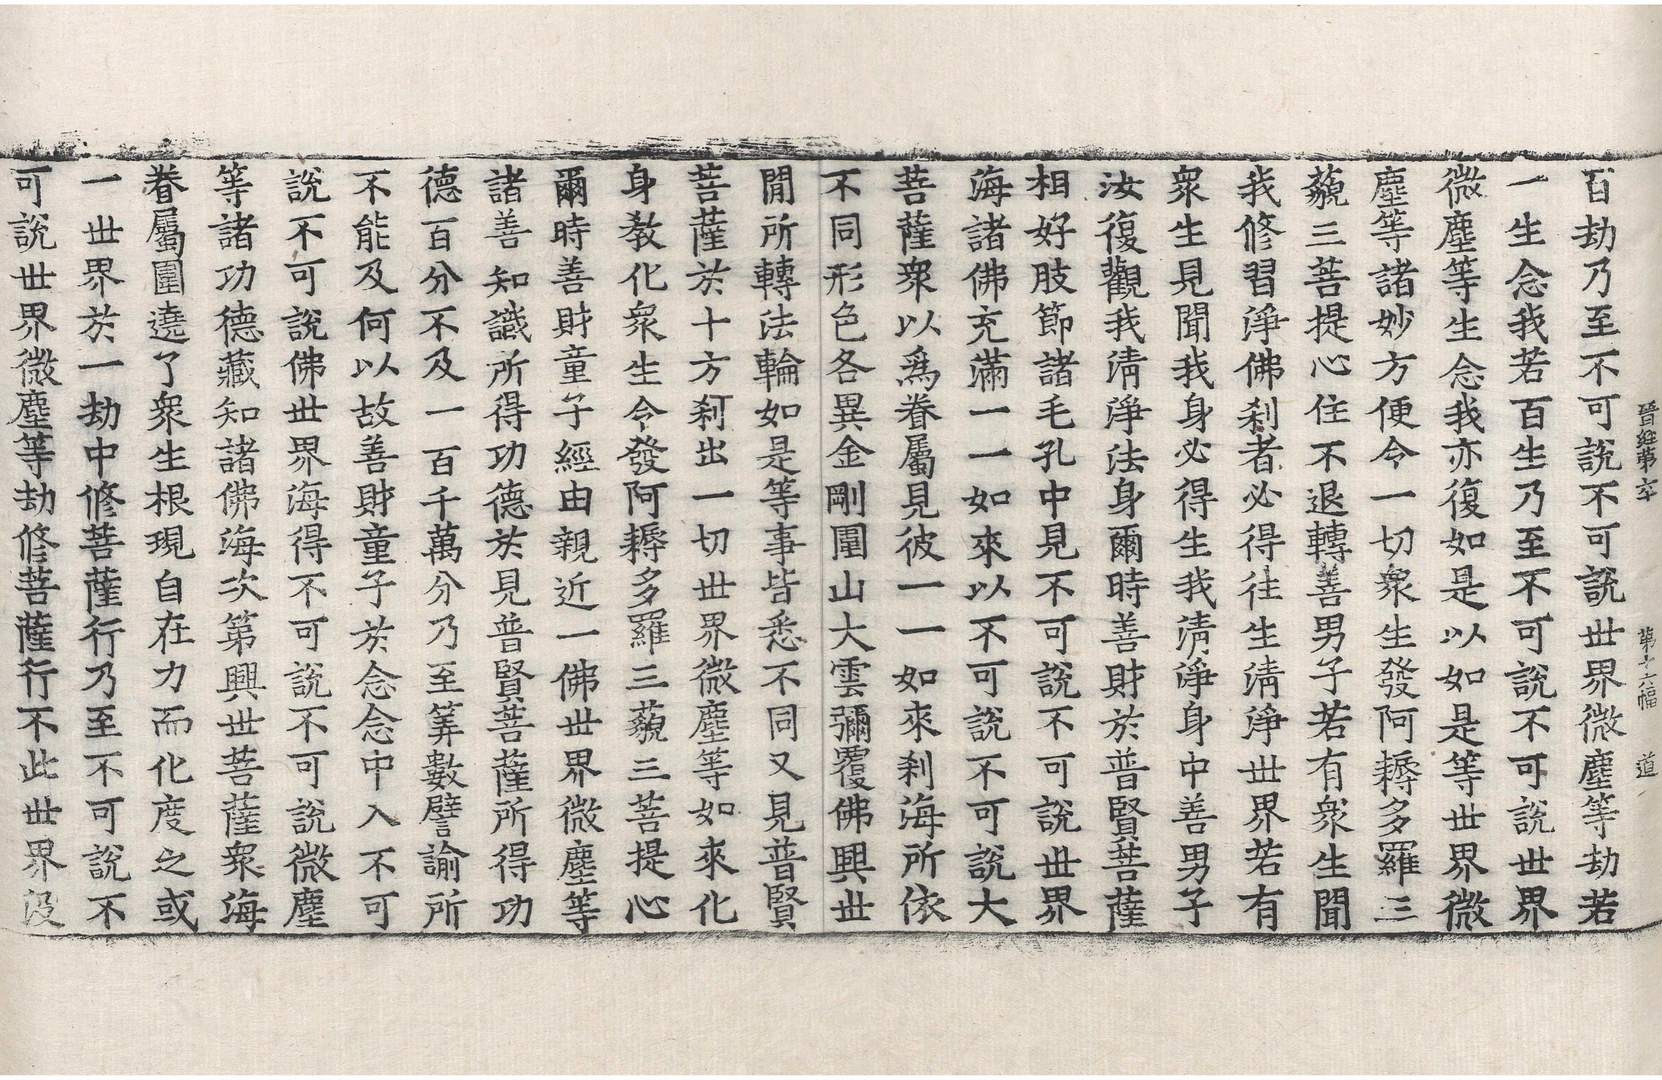 晉經第六十 第十六幅 道
百劫乃至不可說不可說世界微塵等劫若
一生念我若百生乃至不可說不可說世界
微塵等生念我亦復如是以如是等世界微
塵等諸妙方便令一切衆生發阿耨多羅三
藐三菩提心住不退轉善男子若有衆生聞
我修習淨佛刹者必得往生清淨世界若有
衆生見聞我身必得生我清淨身中善男子
汝復觀我清淨法身爾時善財於普賢菩薩
相好肢節諸毛孔中見不可說不可說世界
海諸佛充滿一一如來以不可說不可說大
菩薩衆以爲眷屬見彼一一如來刹海所依
不同形色各異金剛圍山大雲彌覆佛興世
閒所轉法輪如是等事皆悉不同又見普賢
菩薩於十方刹出一切世界微塵等如來化
身教化衆生令發阿耨多羅三藐三菩提心
爾時善財童子經由親近一佛世界微塵等
諸善知識所得功德於見普賢菩薩所得功
德百分不及一百千萬分乃至筭數譬諭所
不能及何以故善財童子於念念中入不可
說不可說佛世界海得不可說不可說微塵
等諸功德藏知諸佛海次第興世菩薩衆海
眷屬圍遶了衆生根現自在力而化度之或
一世界於一劫中修菩薩行乃至不可說不
可說世界微塵等劫修菩薩行不此世界沒